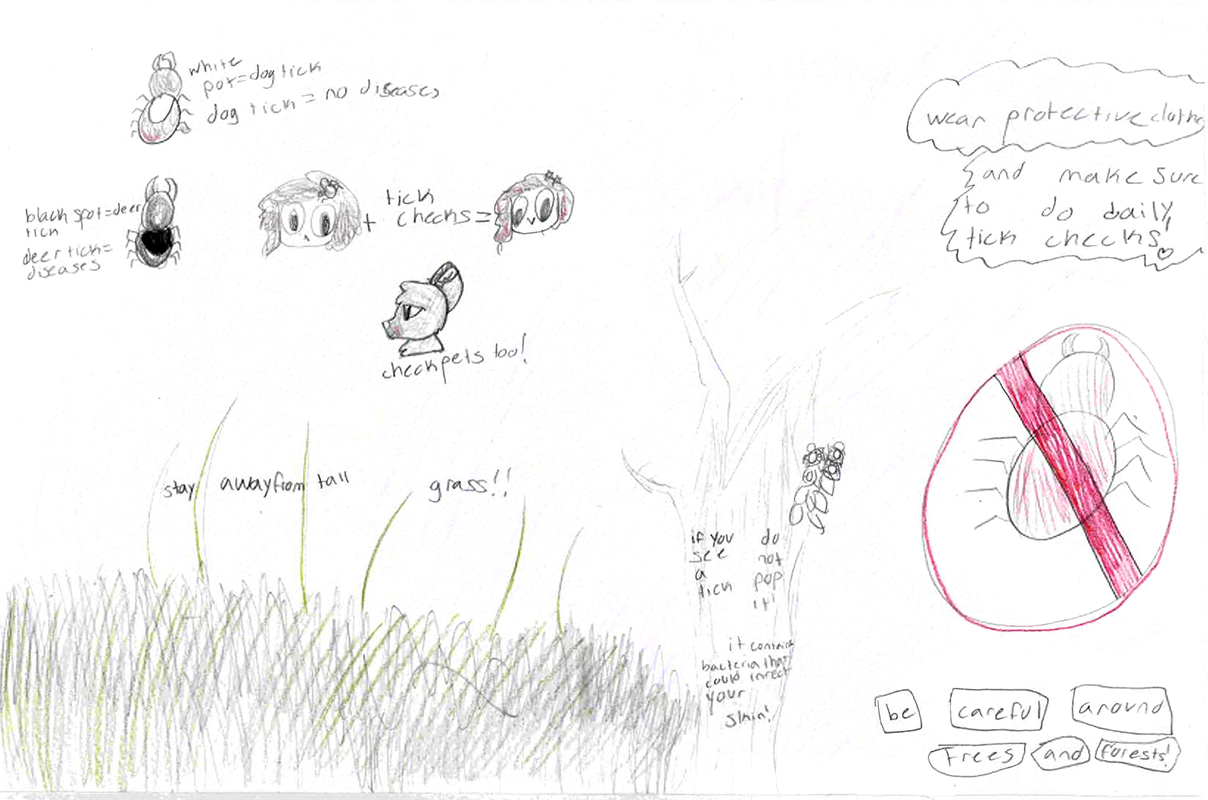 white
pot=dog tick
dog tick = no diseases
black spot=deer
tick
deer tick=
diseases
+ tick
checks =
check pets too!
stay away from tall grass!!
wear protective clothe
and make sure
to do daily
tick checks!
if you
see
a
tick
do
not
pop
it!
it contains
bacteria that
could infect
your
skin!
be careful around
Trees and forests!